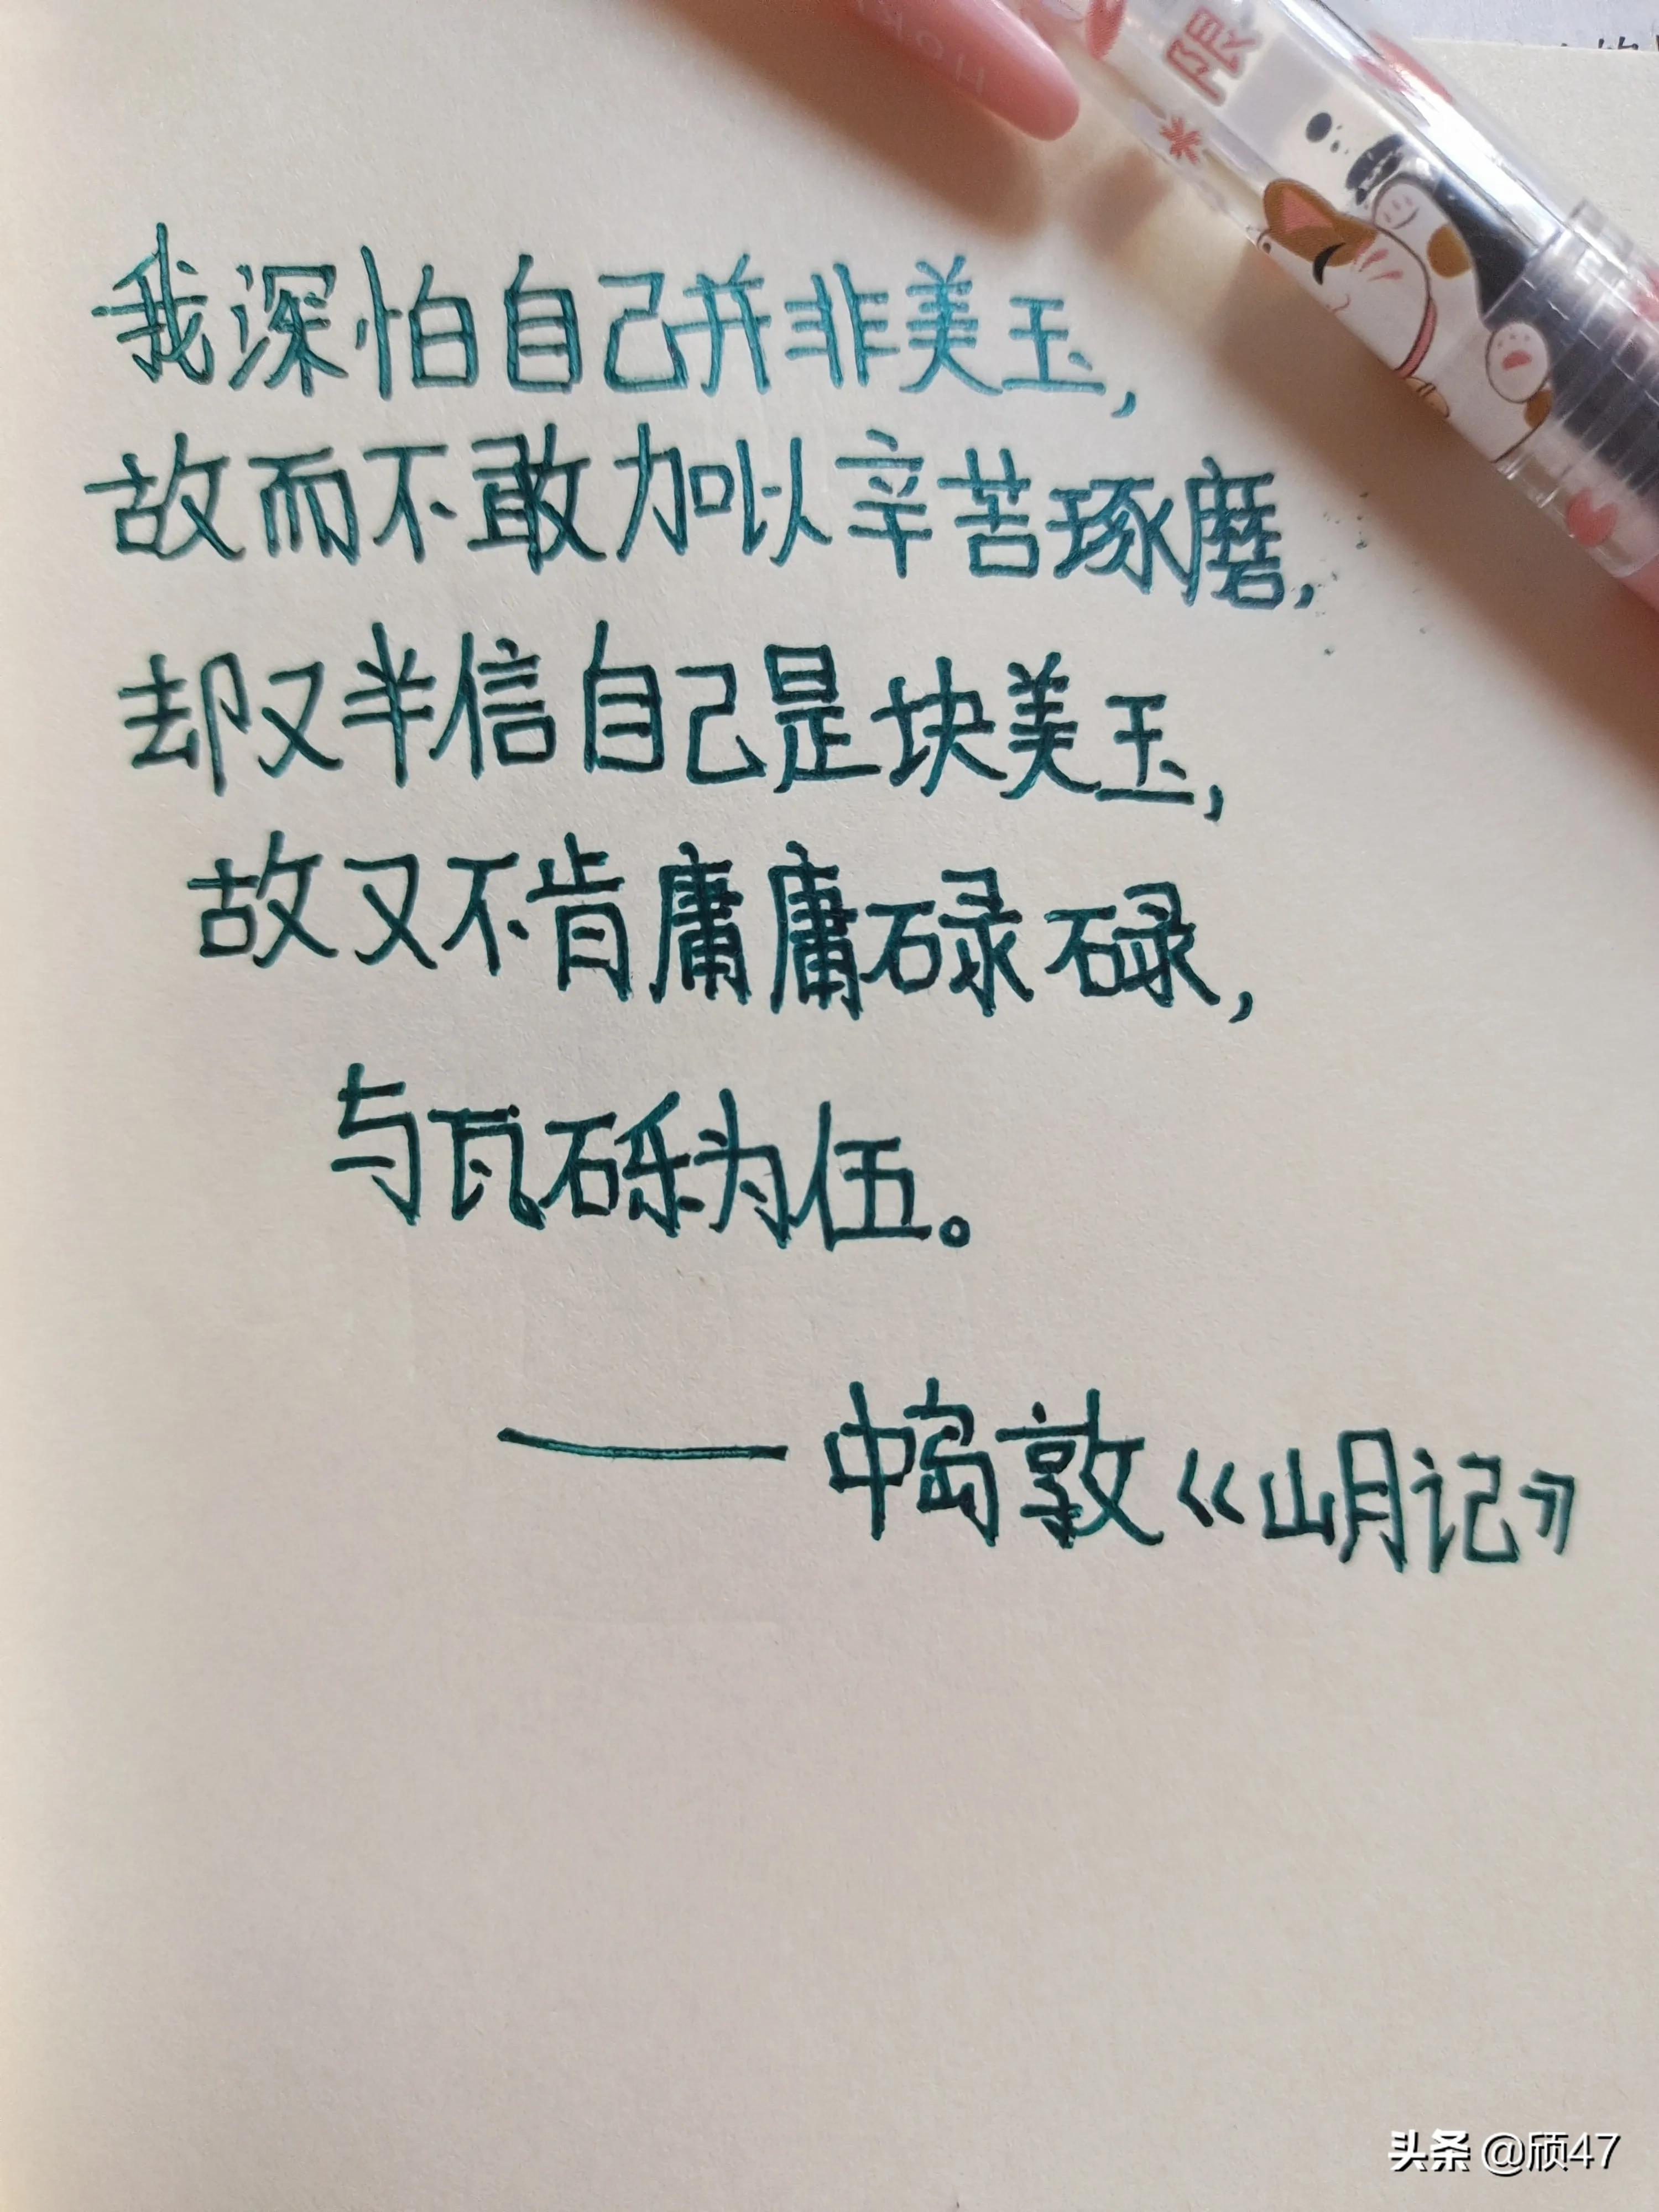 我深怕自己并非美玉，
故而不敢加以辛苦琢磨，
却又半信自己是块美玉，
故又不肯庸庸碌碌，
与瓦砾为伍。
——中岛敦《山月记》
头条 @颀47